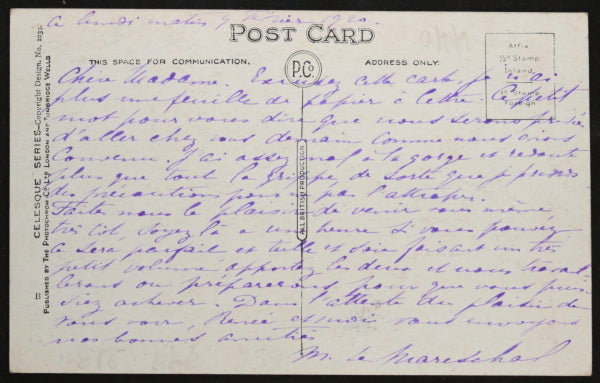 Ce lundi matin 9 février 1920.
POST CARD
THIS SPACE FOR COMMUNICATION.
P.Co.
ADDRESS ONLY.
Affix
½d Stamp
Inland
Stamp
Foreign
CELESQUE SERIES—Copyright Design, No.
PUBLISHED BY THE PHOTOCHROM CO. LTD LONDON AND TUNBRIDGE WELLS
ALL BRITISH PRODUCTION
B
Chère Madame. Excusez cette carte, je n'ai
plus une feuille de papier à lettre. Ce petit
mot pour vous dire que nous serons
d'aller chez vous demain comme nous avions
convenu. J'ai assez mal à la gorge et redoute
plus que tout la grippe de sorte que je prends
des précautions pour ne pas l'attraper.
Faites nous le plaisir de venir vous même
très tôt, à une heure si vous pouvez
ce sera parfait et tulle et soie faisant un très
petit volume apportez les deux et nous travail
lerons ou préparerons pour que vous puis
siez achever. Dans l'attente du plaisir de
vous voir, Renée et moi vous envoyons
nos bonnes amitiés
M. Le Mareschal